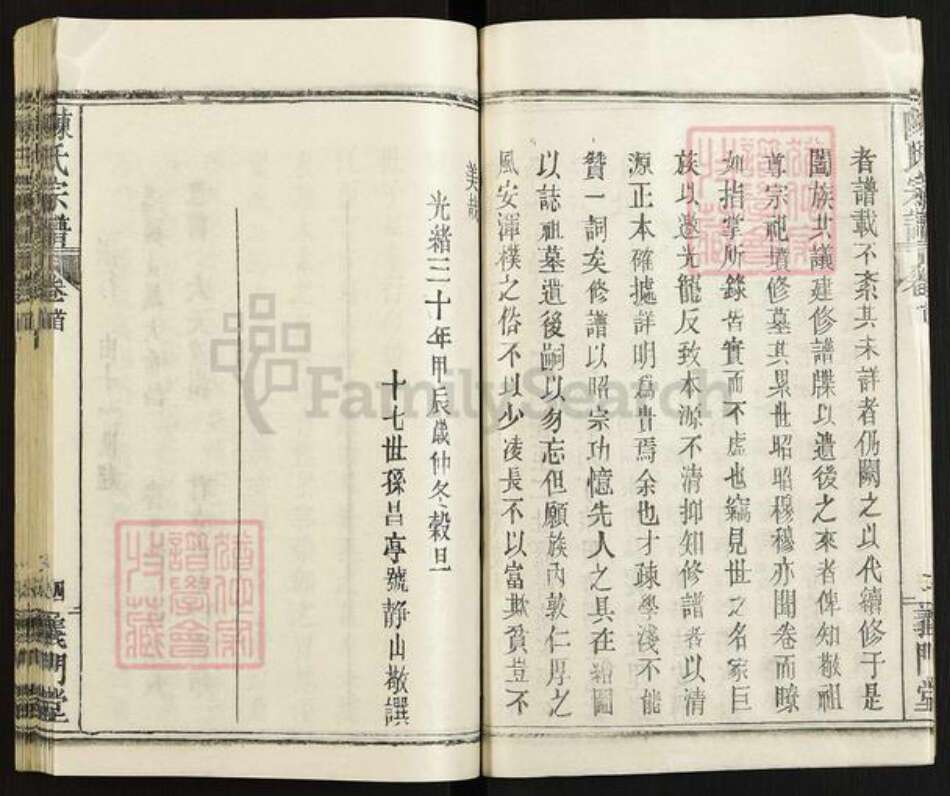 陳氏宗譜 卷首
三 義門堂
者譜載不紊其未詳者仍闕之以代續修于是
闔族共議建修譜牒以遺後之來者俾知敬祖
尊宗視墳修墓其累世昭昭穆穆亦開卷而瞭
如指掌所錄皆實而不虛也竊見世之名家巨
族以邀光寵反致本源不清抑知修譜者以清
源正本確據詳明為貴焉余也才疎學淺不能
贊一詞矣修譜以昭宗功憶先人之具在繪圖
以誌祖墓遺後嗣以勿忘但願族內敦仁厚之
風安渾樸之俗不以少凌長不以富欺貧豈不
美哉
光緒三十年甲辰歲仲冬穀旦
十七世孫昌亭號靜山敬譔
陳氏宗譜 卷首
四 義門堂
FamilySearch